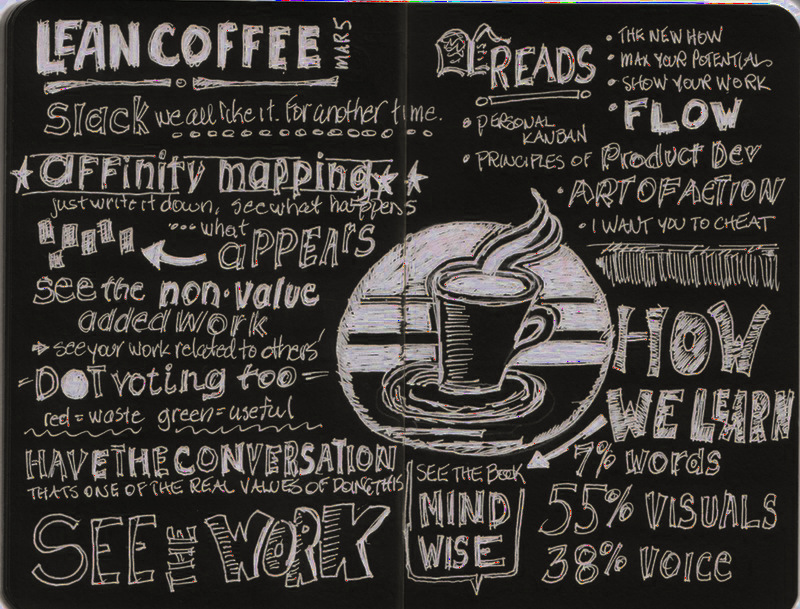 LEAN COFFEE
MAR 5
Slack we all like it. For another time.
affinity mapping
just write it down, see what happens
...what
appears
see the non-value
added work
see your work related to others'
- DOT voting too -
red = waste green = useful
HAVE THE CONVERSATION
THATS ONE OF THE REAL VALUES OF DOING THIS
SEE THE WORK
READS
• THE NEW HOW
• MAX YOUR POTENTIALS
• SHOW YOUR WORK
• FLOW
• PERSONAL
KANBAN
• PRINCIPLES OF Product Dev
• ART OF ACTION
• I WANT YOU TO CHEAT
HOW
WE LEARN
7% words
55% VISUALS
38% VOICE
SEE THE BOOK
MIND
WISE